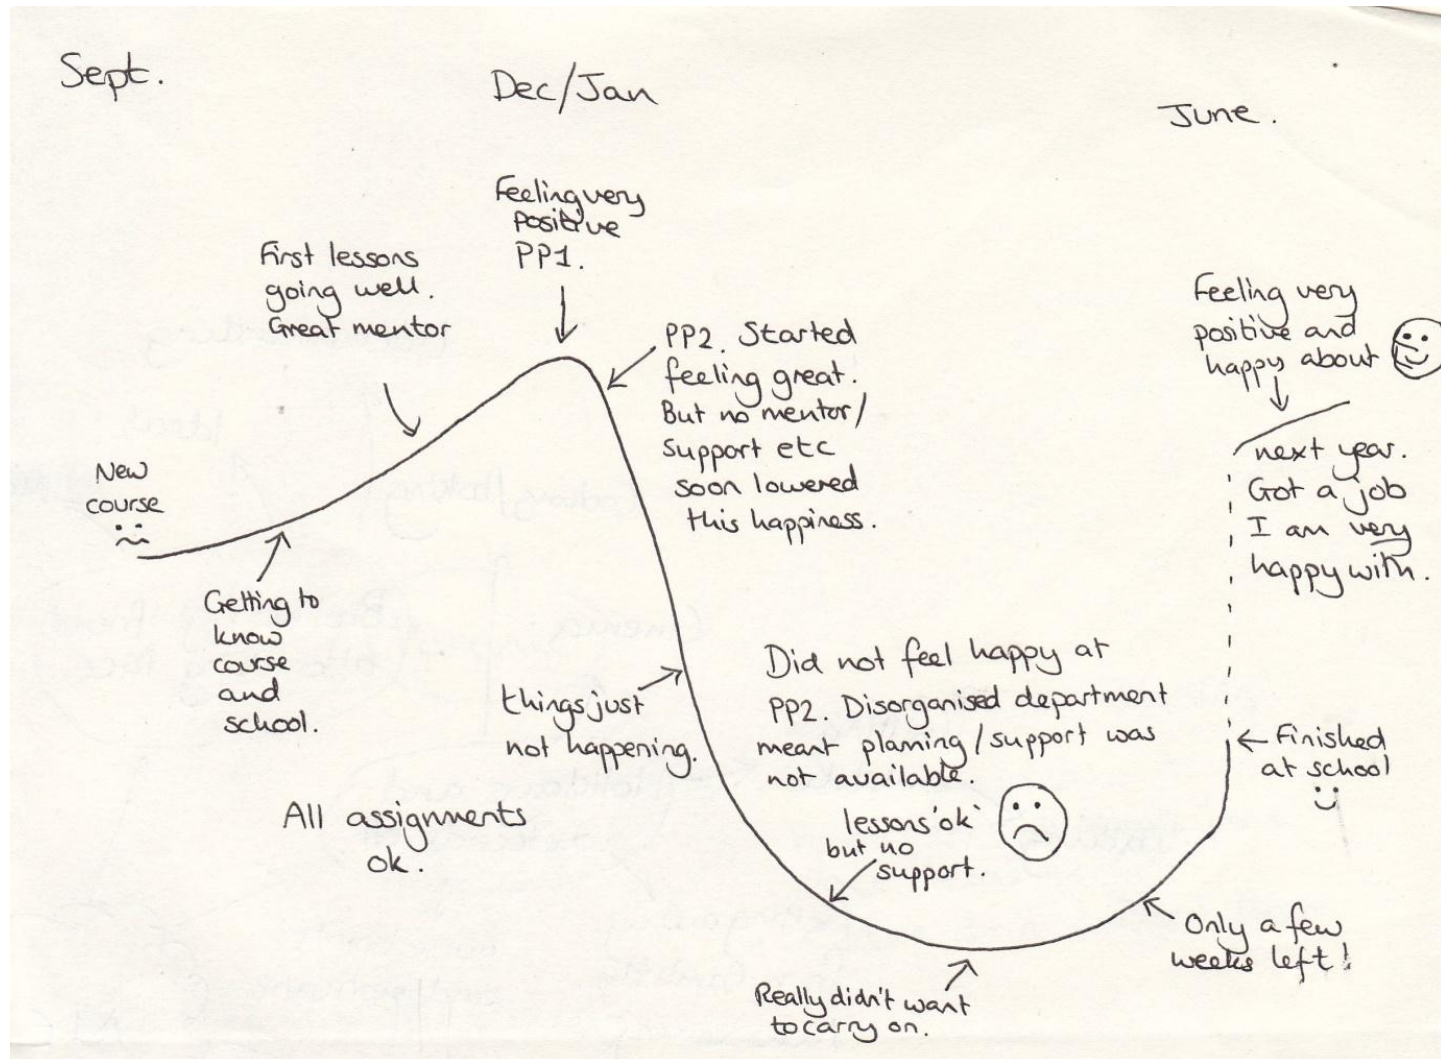 Sept.
Dec/Jan
June.
Feeling very
positive
PP1.
First lessons
going well.
Great mentor
New
course
Getting to
know
course
and
school.
PP2. Started
feeling great.
But no mentor/
support etc
soon lowered
this happiness.
things just
not happening.
All assignments
ok.
Did not feel happy at
PP2. Disorganised department
meant planning/support was
not available.
lessons 'ok'
but no
support.
Really didn't want
to carry on.
Only a few
weeks left!
Finished
at school
Feeling very
positive and
happy about
next year.
Got a job
I am very
happy with.